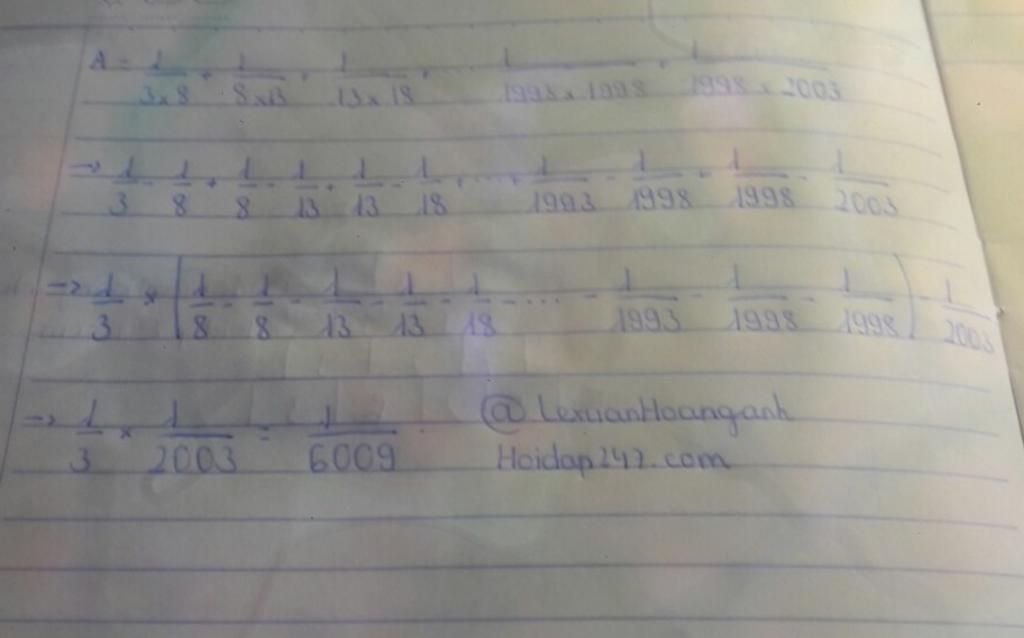 A = 1/3x8 + 1/8x13 + 1/13x18 + ... 1/1993x1998 + 1/1998x2003
→ 1/3 - 1/8 + 1/8 - 1/13 + 1/13 - 1/18 + ... + 1/1993 - 1/1998 + 1/1998 - 1/2003
→ 1/3 x (1/8 - 1/8 - 1/13 - 1/13 - 1/18 - ... - 1/1993 - 1/1998 - 1/1998) - 1/2003
→ 1/3 x 1/2003 = 1/6009 @LexuanHoanganh
Hoidap247.com